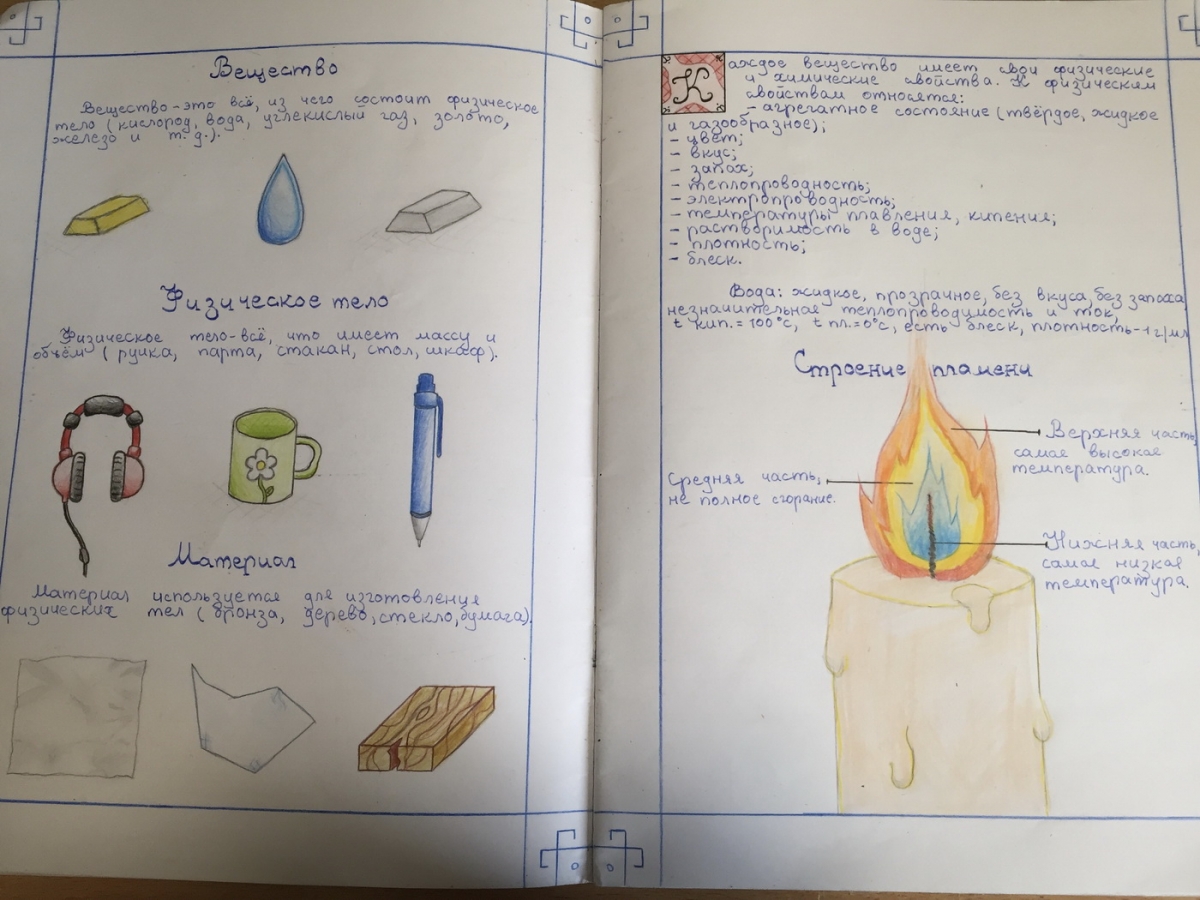 Вещество
Вещество - это всё, из чего состоит физическое
тело (кислород, вода, углекислый газ, золото,
железо и т. д.).
Физическое тело
Физическое тело - всё, что имеет массу и
объём (ручка, парта, стакан, стол, шкаф).
Материал
Материал используется для изготовления
физических тел (бронза, дерево, стекло, бумага).
Каждое вещество имеет свои физические
и химические свойства. К физическим
свойствам относятся:
- агрегатное состояние (твёрдое, жидкое
и газообразное);
- цвет;
- вкус;
- запах;
- теплопроводность;
- электропроводность;
- температуры плавления, кипения;
- растворимость в воде;
- плотность;
- блеск.
Вода: жидкое, прозрачное, без вкуса, без запаха
незначительная теплопроводимость и ток,
t кип. = 100°с, t пл. = 0°с, есть блеск, плотность - 1 г/мл
Строение пламени
Верхняя часть,
самая высокая
температура.
Средняя часть,
не полное сгорание.
Нижняя часть,
самая низкая
температура.